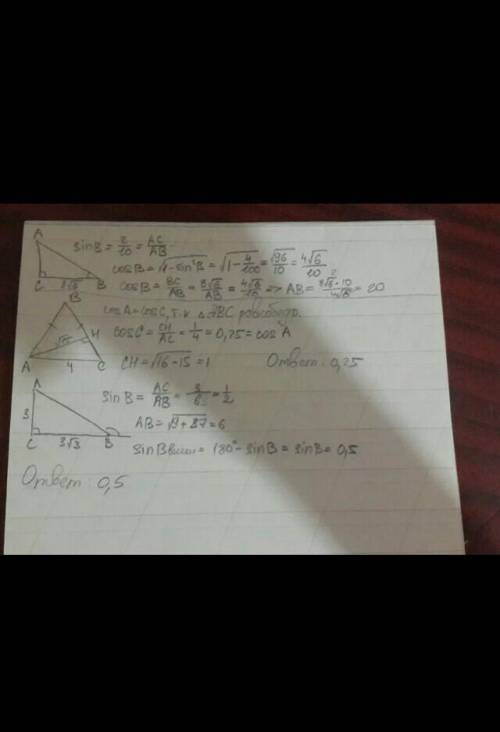 A
sinB = 2/10 = AC/AB
cosB = √(1-sin²B) = √(1-4/100) = √96/10 = 4√6/10
C 8√6 B
cosB = BC/AB = 8√6/AB = 4√6/10 => AB = 8√6·10/4√6 = 20
B
cosA = cosC, т.к. ΔABC равнобедр.
√15 H
cosC = CH/AC = 1/4 = 0,25 = cosA
A 4 C
CH = √16-15 = 1 Ответ: 0,25
A
sinB = AC/AB = 3/6 = 1/2
3
AB = √9+27 = 6
C 3√3 B
sinBвнеш = 180° - sinB = sinB = 0,5
Ответ: 0,5